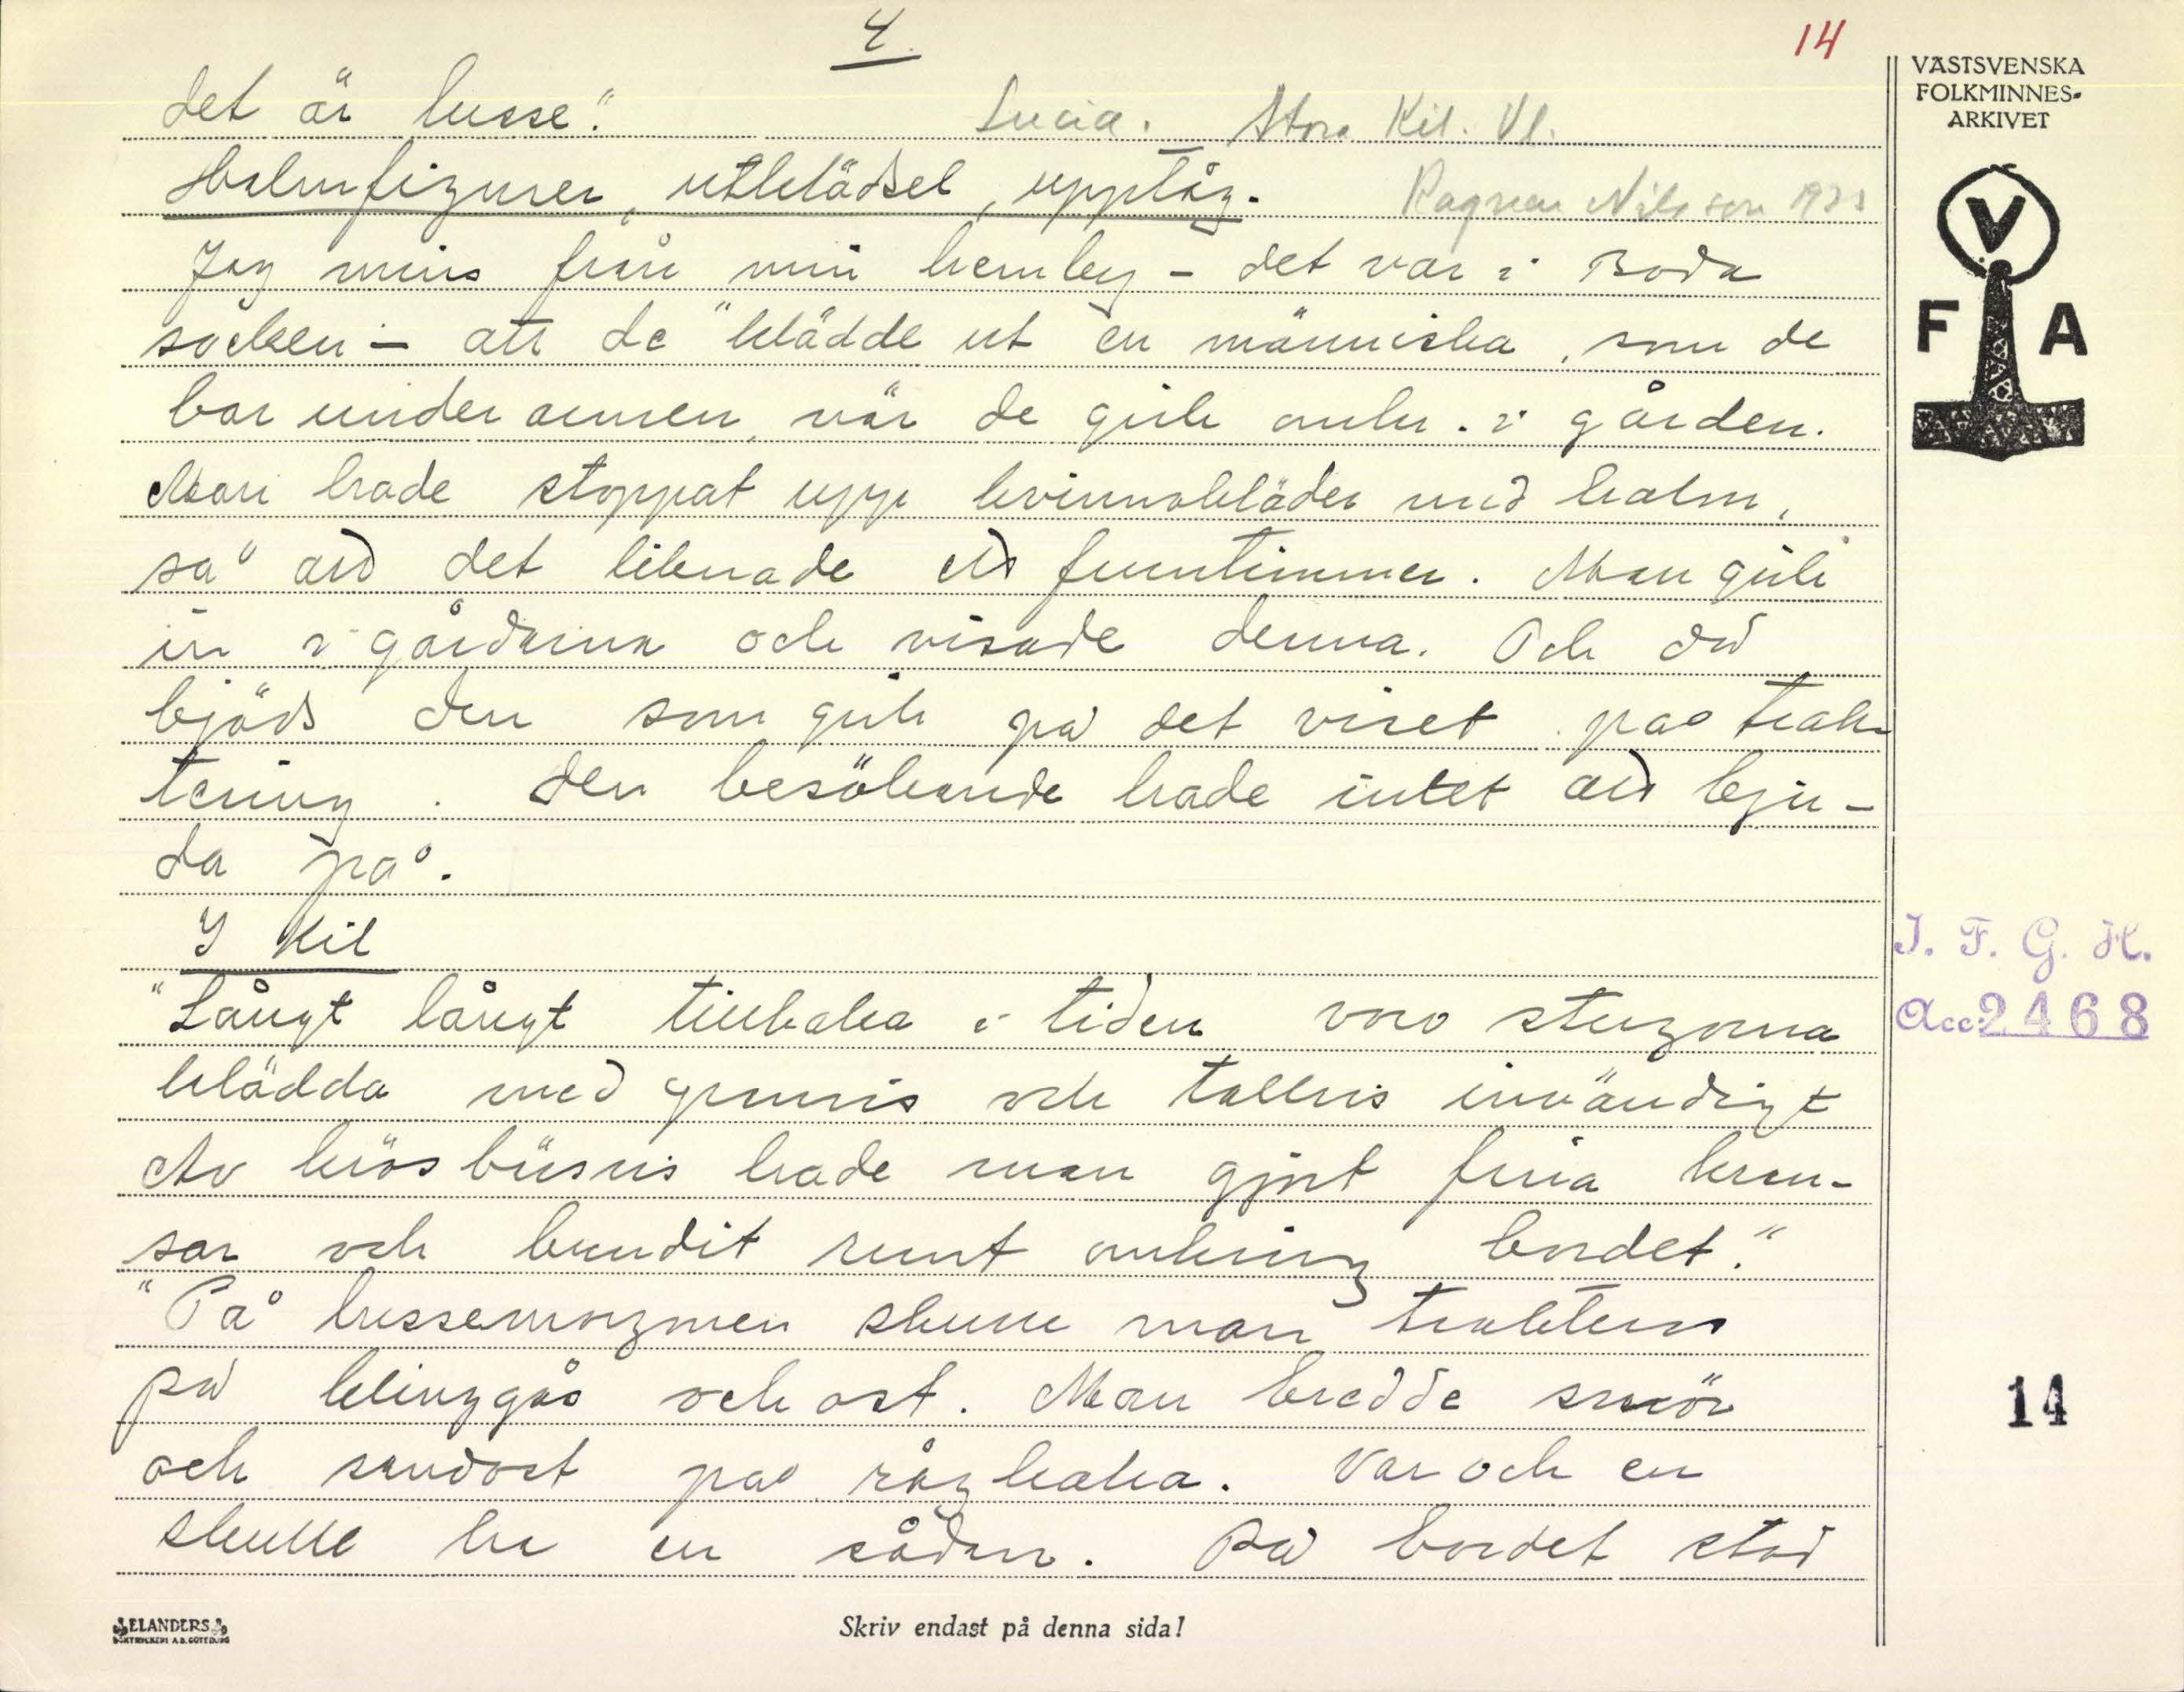 4.
14
det är lusse".
Lucia. Stora Kil. Vl.
Halmfigurer, utklädsel, upptåg.
Ragnar Nilsson
Jag mins från min hemby - det var i Boda
socken - att de "klädde ut en människa, som de
bar under armen, när de gick omkr. i gården.
Man hade stoppat upp kvinnokläder med halm,
så att det liknade ett fruntimmer. Man gick
in i gårdarna och visade denna. Och då
bjöds den som gick på det viset på trak-
tering. Den besökande hade intet att bju-
da på.
I Kil
"Långt långt tillbaka i tiden voro stugorna
klädda med granris och tallris invändigt
Av krösbusris hade man gjort fina kran-
sar och bundit runt omkring bordet."
"På lussemorgonen skulle man trakteras
på klinggås och ost. Man bredde smör
och sandost på rågkaka. Var och en
skulle ha en sådan. På bordet stod
VÄSTSVENSKA
FOLKMINNES-
ARKIVET
V
F A
I. F. G. H.
Acc. 2468
14
ELANDERS
BOKTRYCKERI A.B. GÖTEBORG
Skriv endast på denna sida!